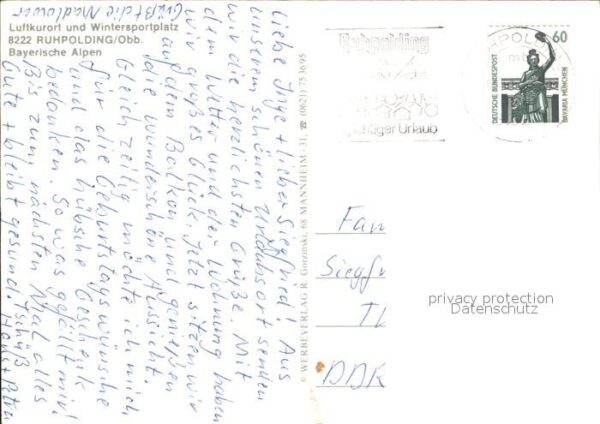 Grüßt die Madlower
Luftkurort und Wintersportplatz
8222 RUHPOLDING/Obb.
Bayerische Alpen
Liebe Inge + lieber Siegfried! Aus
unserem schönen Urlaubsort senden
wir die herzlichsten Grüße. Mit
dem Wetter und der Wohnung haben
wir großes Glück. Jetzt sitzen wir
auf dem Balkon und genießen
die wunderschöne Aussicht.
Gleichzeitig möchte ich mich
für die Geburtstagswünsche
und das hübsche Geschenk
bedanken. So was gefällt mir!
Bis zum nächsten Mal alles
Gute + bleibt gesund. Tschüß
Hans + Petra
© WERBEVERLAG R. Gorzinski, 68 MANNHEIM-31, ☎ (0621) 7536 95
Ruhpolding
richtiger Urlaub
RUHPOLD
60
DEUTSCHE BUNDESPOST
BAVARIA MÜNCHEN
Fam
Siegfr
DDR
privacy protection
Datenschutz